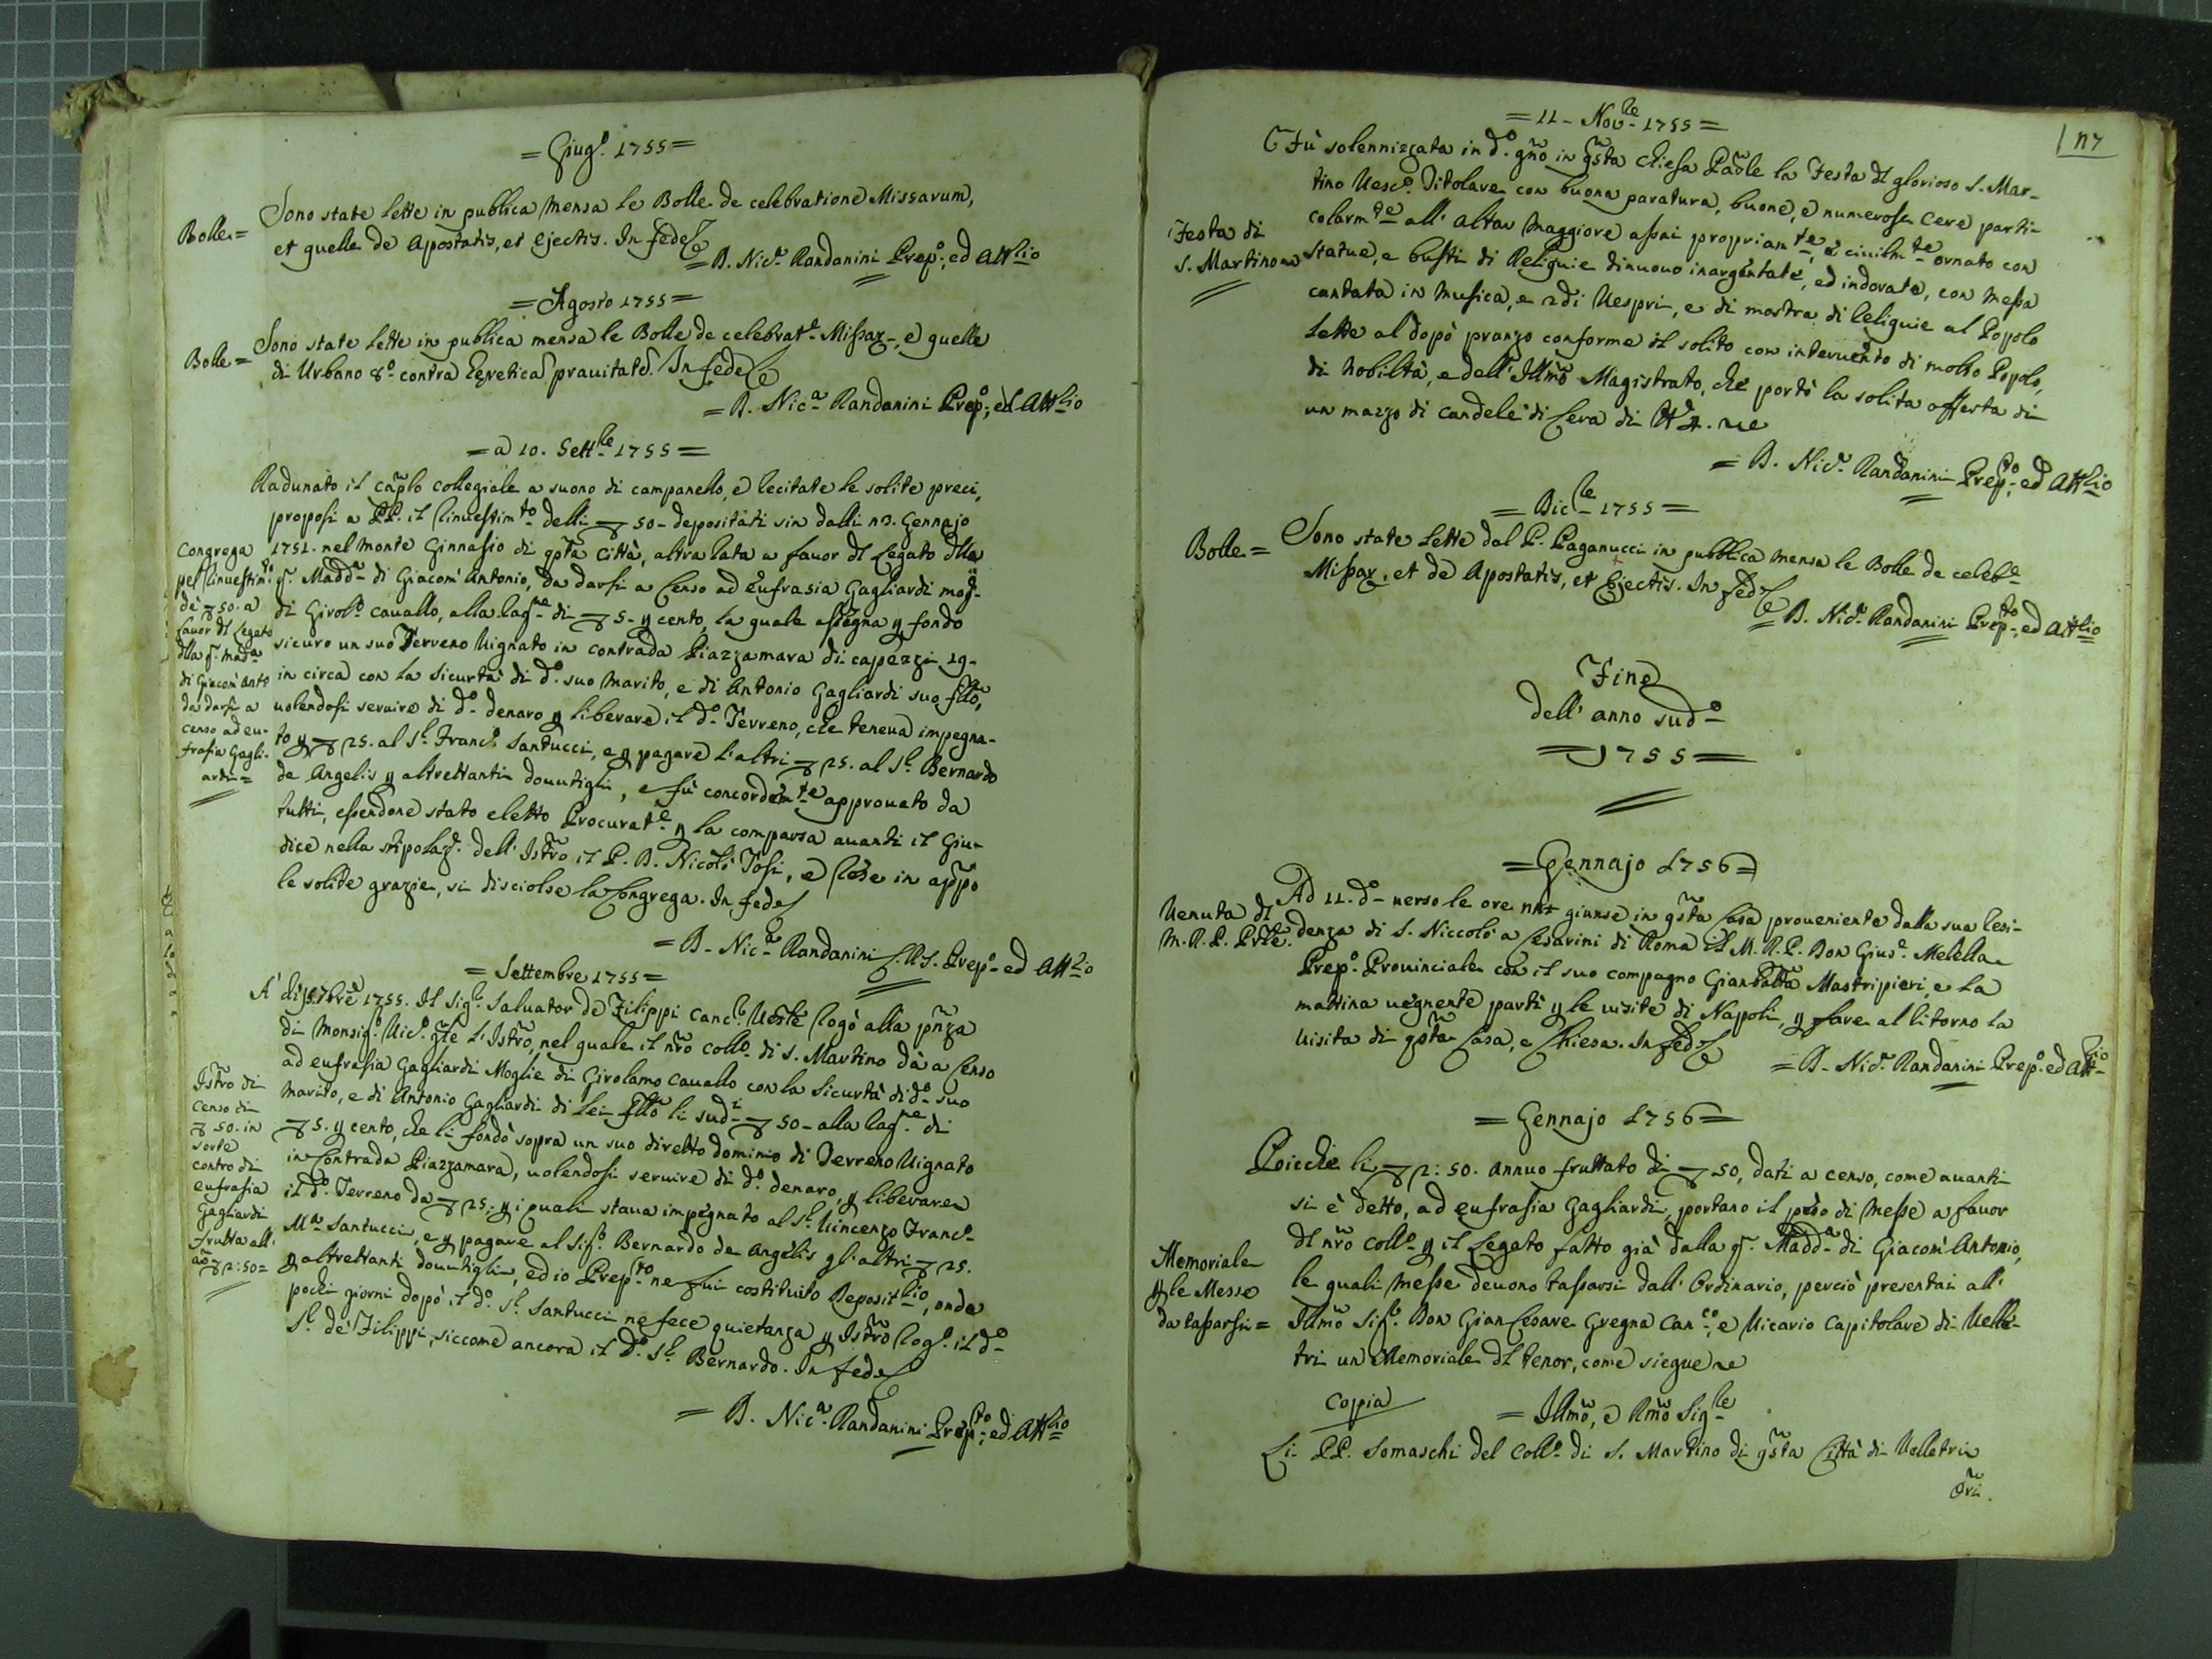 = Giug.º 1755 =
Bolle =
Sono state lette in publica mensa le Bolle de celebratione Missarum,
et quelle de Apostatis, et Ejectis. In fede
= D. Nic.ª Randanini Prep.º, ed Att.rio
= Agosto 1755 =
Bolle =
Sono state lette in publica mensa le Bolle de celebrat.e Missar., e quelle
di Urbano 8.º contra hereticas pravitates. In fede
= D. Nic.ª Randanini Prep.º, ed Att.rio
= a 10. Sett.re 1755 =
Congrega
pel rinvestim.to
de 50. a
favor dl Legato
dlla q. Mad.a
di Giacom' Ant.o
da darsi a
censo ad Eu-
frasia Gagli-
ardi =
Radunato il caplo collegiale a suono di campanello, e recitate le solite preci,
proposi a PP. il rinvestim.to delli 50 - depositati sin dalli 23. Gennajo
1751. nel monte Ginnasio di qsta città, altra lata a favor dl Legato dlla
q. Madd.a di Giacom' Antonio, da darsi a Censo ad Eufrasia Gagliardi mog.
di Girol.º Cavallo, alla rag.ne di 5. p cento, la quale assegna p fondo
sicuro un suo Terreno Vignato in contrada Piazzamara di capezzi 19-
in circa con la sicurtà di d.º suo marito, e di Antonio Gagliardi suo fllo,
volendosi servire di d.º denaro p liberare il d.º Terreno, che teneva impegna-
to p 25. al S.r Franc.º Santucci, e p pagare l'altri 25. al S.r Bernardo
de Angelis p altrettanti dovutigli, e fù concordem.te approvato da
tutti, essendone stato eletto Procurat.e p la comparsa avanti il Giu-
dice nella stipolaz. dell' Istro il P. D. Nicolò Tosi, e rese in appo
le solite grazie, si disciolse la Congrega. In fede
= D. Nic.ª Randanini C.R.S. Prep.º ed Att.rio
= Settembre 1755 =
Istro di
censo di
50. in
sorte
contro di
Eufrasia
Gagliardi
frutta all'
año 2:50 =
A' di 7bre 1755. Il Sig.r Salvator de Filippi Canc.r Vesle rogò alla pnza
di Monsig.r Vic.º gle l'Istro, nel quale il nro Coll.º di S. Martino dà a Censo
ad Eufrasia Gagliardi Moglie di Girolamo Cavallo con la Sicurtà di d.º suo
marito, e di Antonio Gagliardi di lei fllo li sud.i 50 - alla rag.ne di
5. p cento, che li fondò sopra un suo diretto dominio di Terreno Vignato
in Contrada Piazzamara, volendosi servire di d.º denaro, p liberare
il d.º Terreno da 25. p i quali stava impegnato al S.r Vincenzo Franc.º
M.a Santucci, e p pagare al Sig.r Bernardo de Angelis gl'altri 25.
p altrettanti dovutigli, ed io Prep.to ne fui costituito Deposit.rio, onde
pochi giorni dopò il d.º S.r Santucci ne fece quietanza p Istro rog.º il d.º
S.r de' Filippi, siccome ancora il d.º S.r Bernardo. In fede
= D. Nic.ª Randanini Prep.to, ed Att.rio
127
= 11 - Nov.re 1755 =
Festa di
S. Martino
Fù solennizzata in d.º gno in qsta Chiesa Paöle la Festa dl glorioso S. Mar-
tino Vesc.º Titolare con buona paratura, buone, e numerose Cere parti-
colarm.te all' altar Maggiore assai propriam.te, e civilm.te ornato con
statue, e busti di Reliquie dinuovo inargentate, ed indorate, con Messa
cantata in Musica, e 2di Vespri, e di mostra di Reliquie al Popolo
lette al dopò pranzo conforme il solito con intervento di molto Popolo,
di Nobiltà, e dell' Illmo Magistrato, che portò la solita offerta di
un mazzo di candele di Cera di
= D. Nic.ª Randanini Prep.to, ed Att.rio
= Dic.re 1755 =
Bolle =
Sono state lette dal P. Paganucci in pubblica mensa le Bolle de celeb.e
Missar., et de Apostatis, et Ejectis. In fede
= D. Nic.ª Randanini Prep.to, ed Att.rio
Fine
dell' anno sud.º
= 1755 =
= Gennajo 1756 =
Venuta dl
M.R.P. Prle.
Ad 11. d.º verso le ore giunse in qsta Casa proveniente dalla sua Resi-
denza di S. Niccolò a Cesarini di Roma il M.R.P. Don Gius.e Melella
Prep.º Provinciale con il suo compagno Gianbatta Mastripieri, e la
mattina vegnente partì p le visite di Napoli p fare al ritorno la
visita di qsta Casa, e Chiesa. In fede
= D. Nic.ª Randanini Prep.º ed Att.rio
= Gennajo 1756 =
Memoriale
p le Messe
da tassarsi =
Poicche li 2:50. annuo fruttato di 50, dati a censo, come avanti
si è detto, ad Eufrasia Gagliardi, portano il peso di Messe a favor
dl nro Coll.º p il Legato fatto già dalla q. Madd.a di Giacom' Antonio,
le quali Messe devono tassarsi dall' Ordinario, perciò presentai all'
Illmo Sig.r Don Gian Cesare Gregna Can.co, e Vicario Capitolare di Velle-
tri un Memoriale dl tenor, come siegue
Copia
= Illmo, e Rmo Sig.re
Li PP. Somaschi del Coll.º di S. Martino di qsta Città di Velletri
Ori.